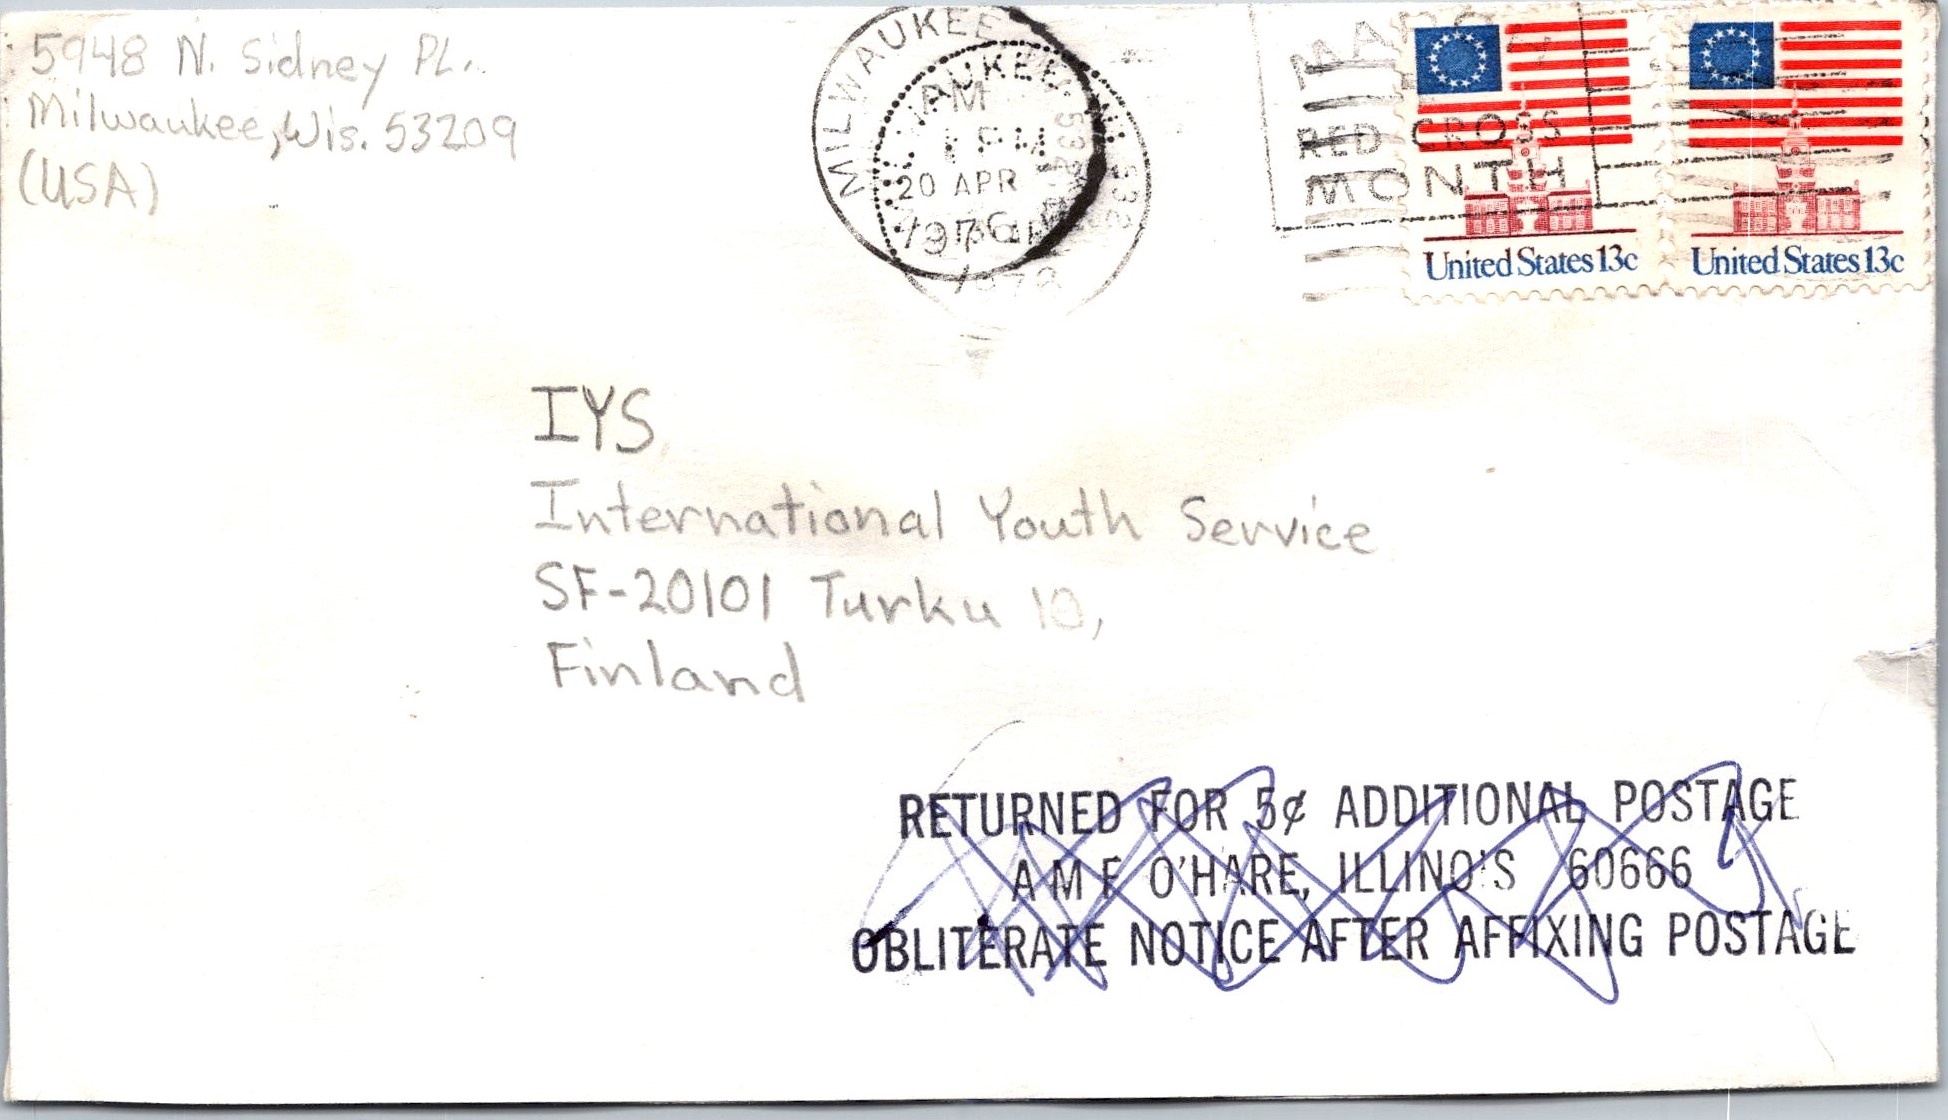 5948 N. Sidney PL.
Milwaukee, Wis. 53209
(USA)
MILWAUKEE
AUKEE
AM
PM
20 APR
1976
RED CROSS
MONTH
United States 13c
United States 13c
IYS
International Youth Service
SF-20101 Turku 10,
Finland
RETURNED FOR 5¢ ADDITIONAL POSTAGE
AMF O'HARE, ILLINO'S 60666
OBLITERATE NOTICE AFTER AFFIXING POSTAGE